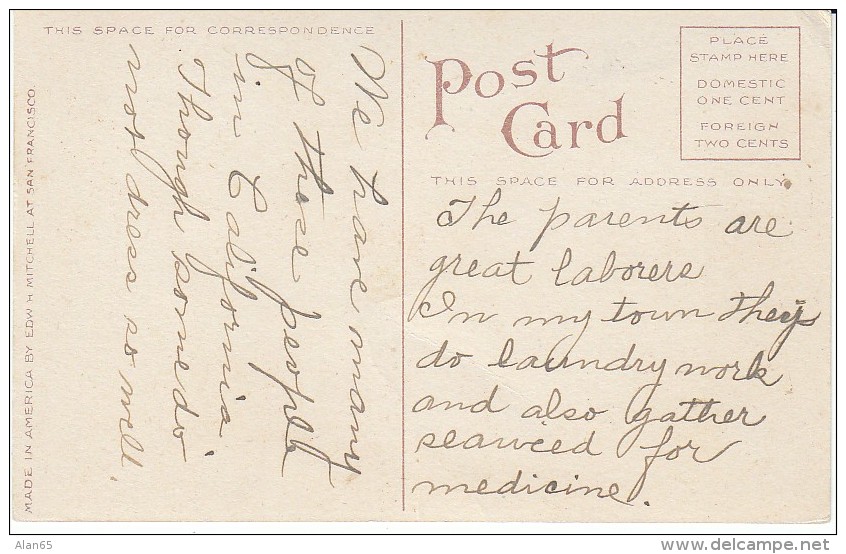 THIS SPACE FOR CORRESPONDENCE
We have many
of these people
in California
Though some do
not dress so well.
MADE IN AMERICA BY EDW H MITCHELL AT SAN FRANCISCO.
Post
Card
PLACE
STAMP HERE
DOMESTIC
ONE CENT
FOREIGN
TWO CENTS
THIS SPACE FOR ADDRESS ONLY
The parents are
great laborers
In my town they
do laundry work
and also gather
seaweed for
medicine.
Alan65
delcampe.net